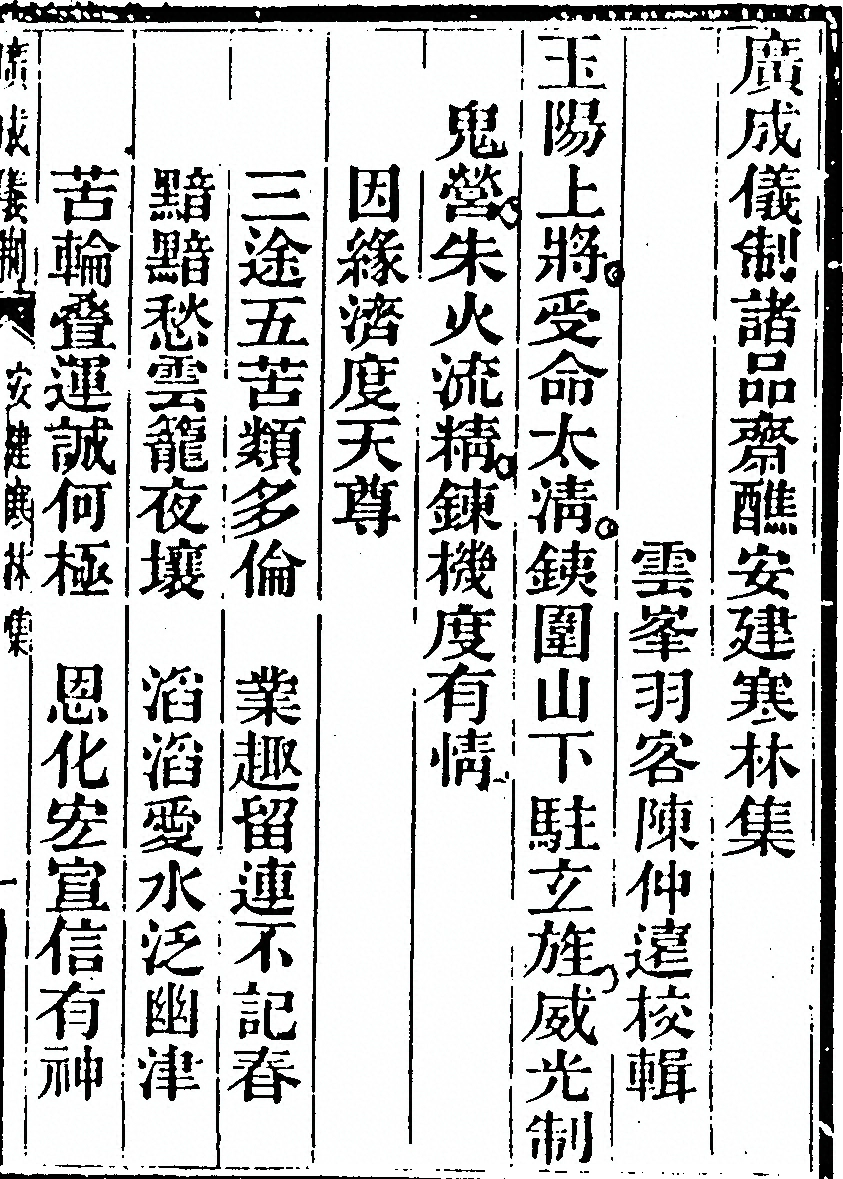 廣成儀制諸品齋醮安建寒林集
雲峯羽客陳仲遠校輯
玉陽上將。受命太清。鐵圍山下駐玄旌。威光制
鬼營。朱火流精。鍊機度有情。
因緣濟度天尊
三途五苦類多倫　業趣留連不記春
黯黯愁雲籠夜壤　滔滔愛水泛幽津
苦輪叠運誠何極　恩化宏宣信有神
廣成儀制　安建寒林集　一